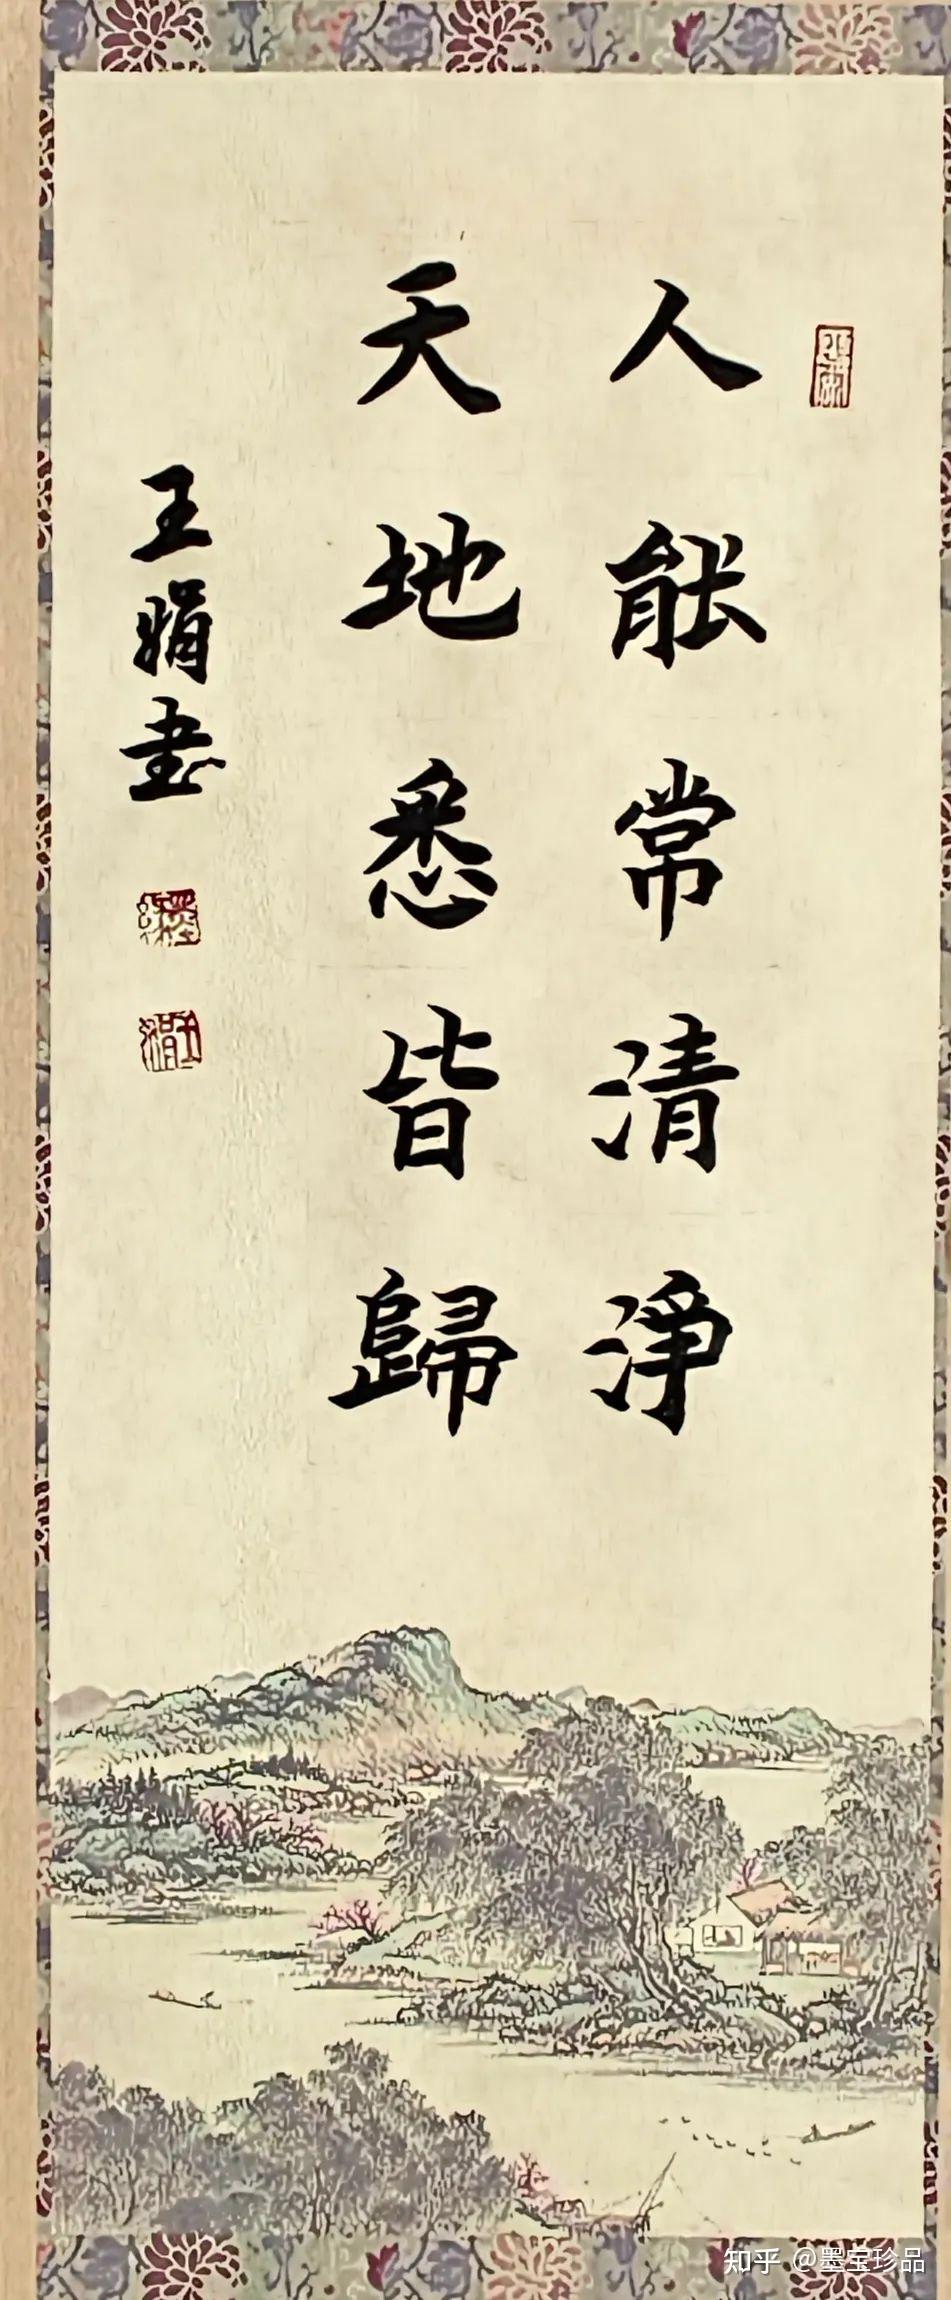 人能常清淨
天地悉皆歸
王娟書
知乎 @墨宝珍品